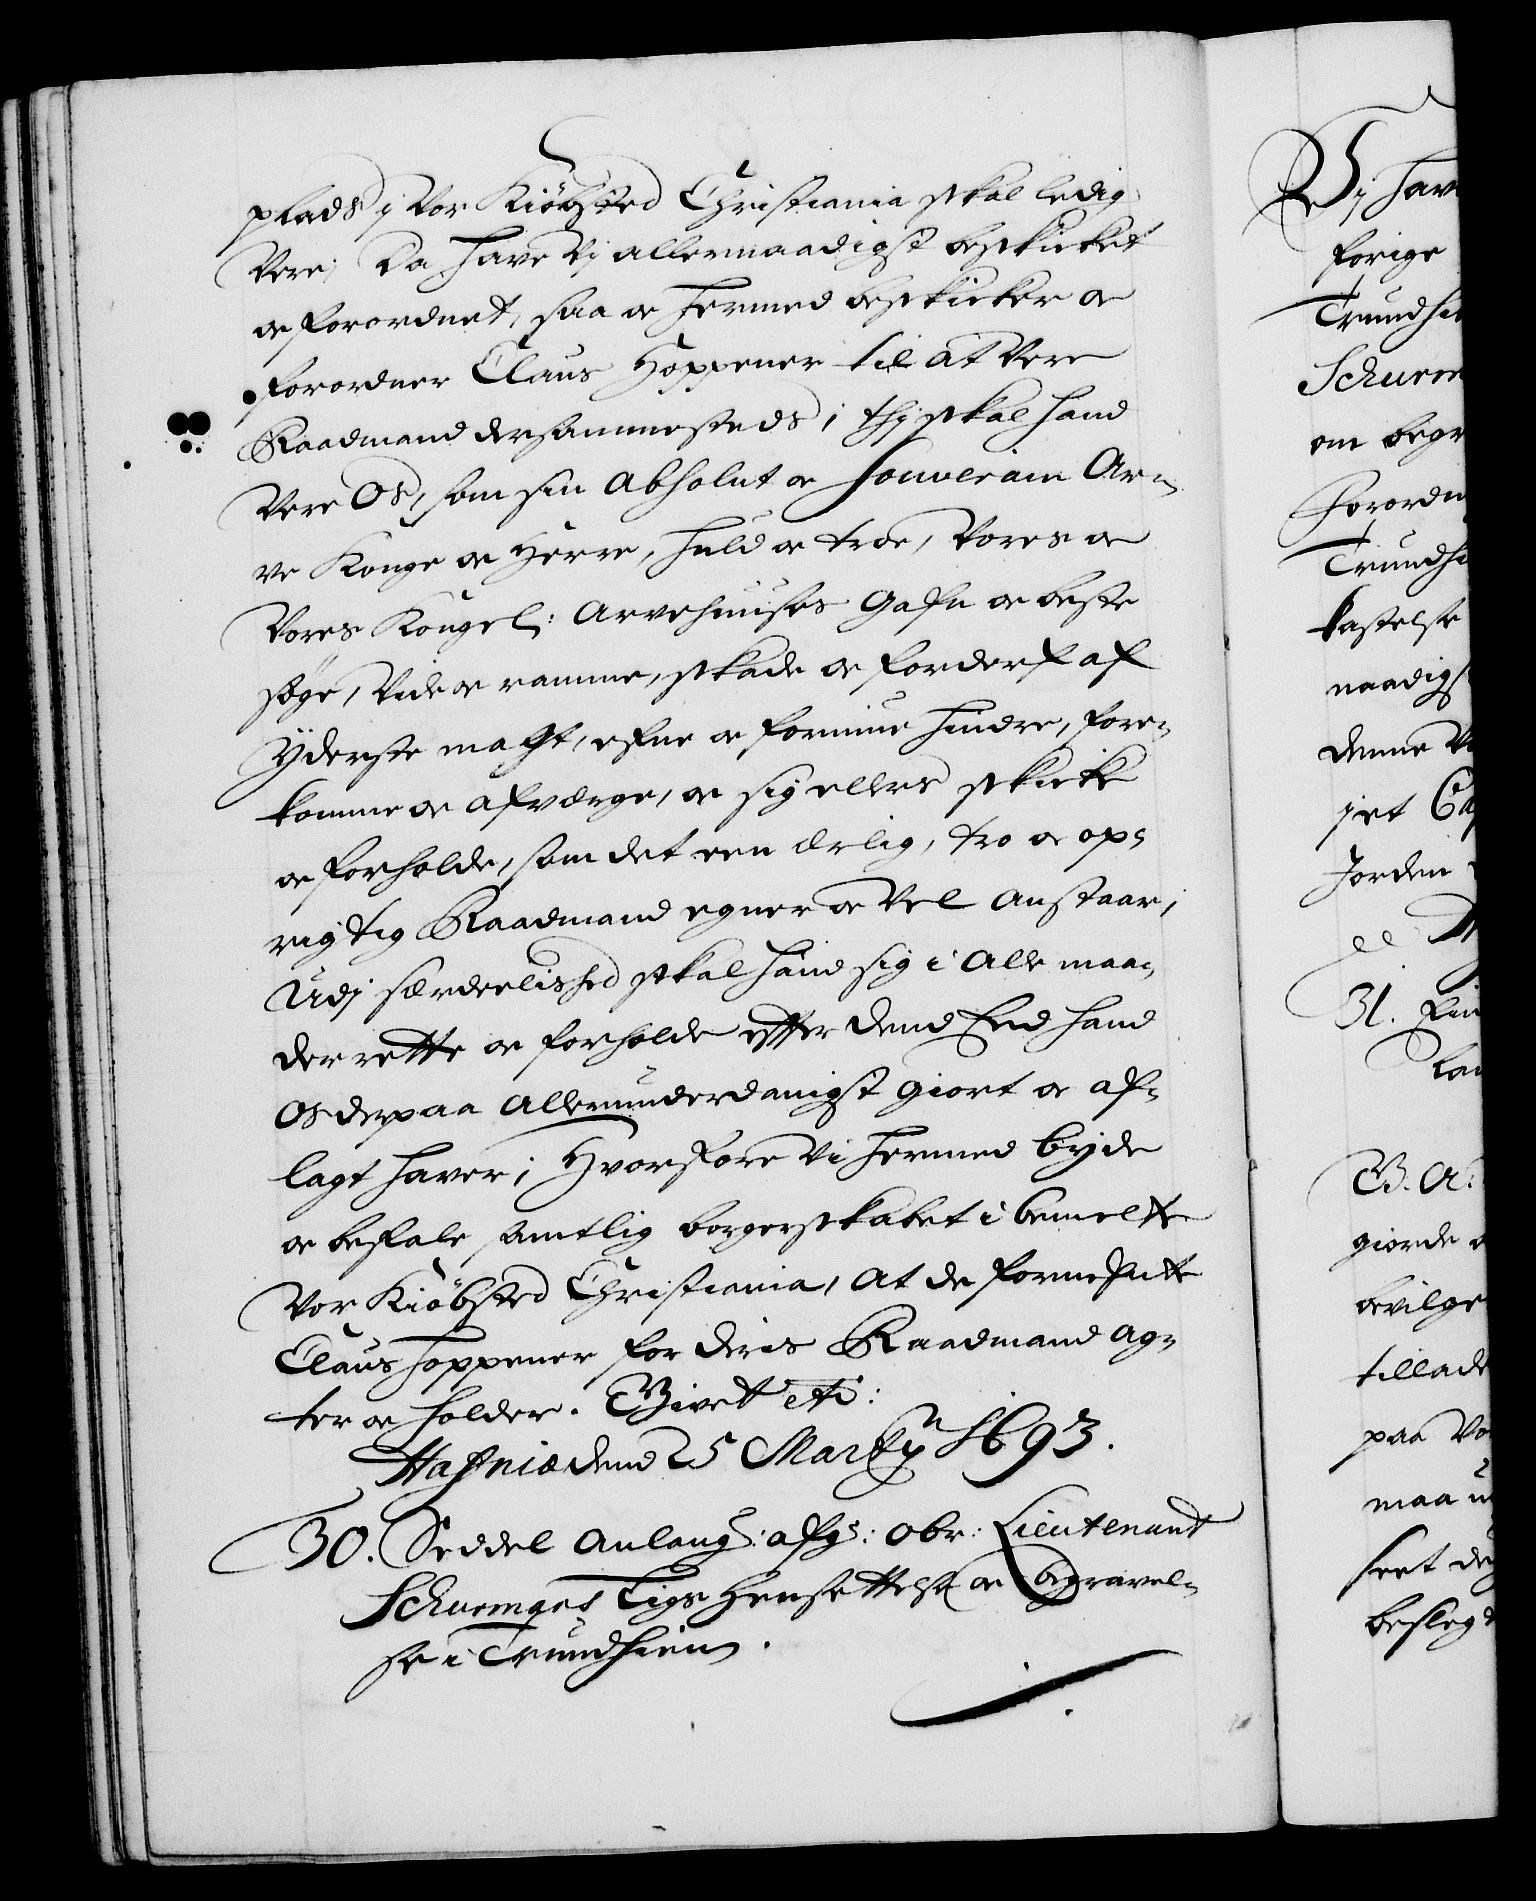 plads j Vor Kiöbsted Christiania skal ledig
Vere; Da have Vj allernaadigst beskicket
oc forordnet, saa oc hermed beskicker oc
forordner Claus Hoppener til at Vere
Raadmand dersammesteds; thj skal hand
Vere Os, som sin Absolut oc Souverain Ar-
ve Konge oc Herre, huld oc troe, Vores oc
Vores Kongel: Arvehuuses Gafn oc beste
søge, Vide oc ramme, skade oc forderf af
Yderste magt, efne oc formue hindre, fore-
komme oc afværge, oc sig ellers skicke
oc forholde, som det een ærlig, tro oc op-
rigtig Raadmand egner oc Vel anstaar;
Udj særdeelished skal hand sig i Alle maa-
der rette oc forholde effter dend Eed hand
Os derpaa Allerunderdanigst giort oc af-
lagt haver; Hvorfore Vi hermed byde
oc befale samtlig borgerskabet i bemelte
Vor Kiöbsted Christiania, at de fornefnte
Claus Hoppener for deris Raadmand ag-
ter oc holder. Givet etc:
Hafniæ dend 25 Martij 1693.
30. Seddel Anlang: afg: obr: Lieutenant
Schurmans Ligs Hensettelse oc Begravel-
se i Trundhiem.
Vj hav
forige
Trundhi
Schurm
om begr
Forordn
Trundhi
kastelse
naadigs
denne Vo
jet Ca
Jorden
31. Fri
B. A:
giorde
bevilge
tillade
paa Vo
maa u
seet de
besleg